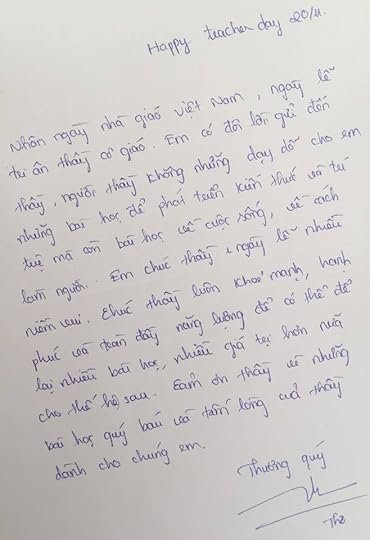 Happy teacher day 20/11.
Nhân ngày nhà giáo Việt Nam, ngày lễ
tri ân thầy cô giáo. Em có đôi lời gửi đến
thầy, người thầy không những dạy dỗ cho em
những bài học để phát triển kiến thức và trí
tuệ mà còn bài học về cuộc sống, về cách
làm người. Em chúc thầy 1 ngày lễ nhiều
niềm vui. Chúc thầy luôn khoẻ mạnh, hạnh
phúc và tràn đầy năng lượng để có thể để
lại nhiều bài học, nhiều giá trị hơn nữa
cho thế hệ sau. Cảm ơn thầy vì những
bài học quý báu và tấm lòng của thầy
dành cho chúng em.
Thương quý